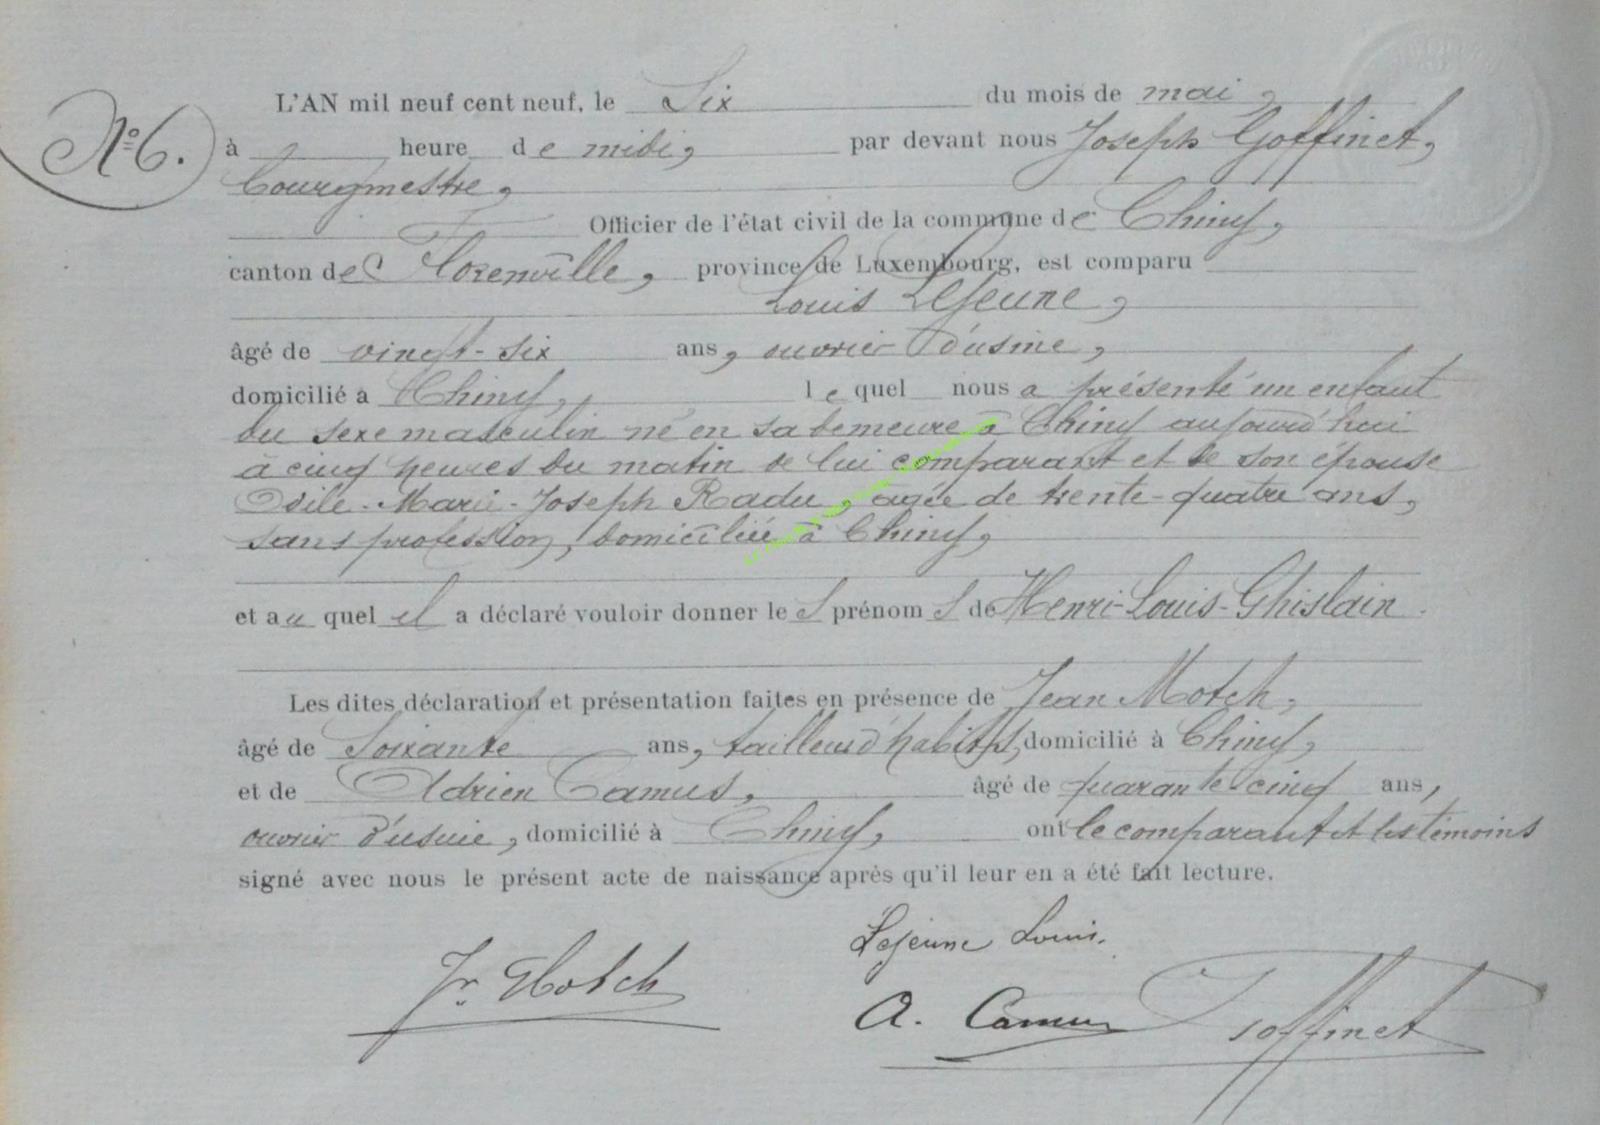 N° 6.
L'AN mil neuf cent neuf, le Six du mois de mai,
à heure de midi, par devant nous Joseph Goffinet,
bourgmestre,
Officier de l'état civil de la commune de Chiny,
canton de Florenville, province de Luxembourg, est comparu
Louis Lejeune,
âgé de vingt-six ans, ouvrier d'usine,
domicilié à Chiny, le quel nous a présenté un enfant
du sexe masculin né en sa demeure à Chiny aujourd'hui
à cinq heures du matin de lui comparant et de son épouse
Odile-Marie-Joseph Radu, agée de trente-quatre ans,
sans profession, domiciliée à Chiny,
et au quel il a déclaré vouloir donner les prénoms de Henri-Louis-Ghislain.
Les dites déclaration et présentation faites en présence de Jean Motch,
âgé de Soixante ans, tailleur d'habits, domicilié à Chiny,
et de Adrien Camus, âgé de quarante cinq ans,
ouvrier d'usine, domicilié à Chiny, ont le comparant et les témoins
signé avec nous le présent acte de naissance après qu'il leur en a été fait lecture.
Lejeune Louis.
Jn. Motch
A. Camus
J Goffinet